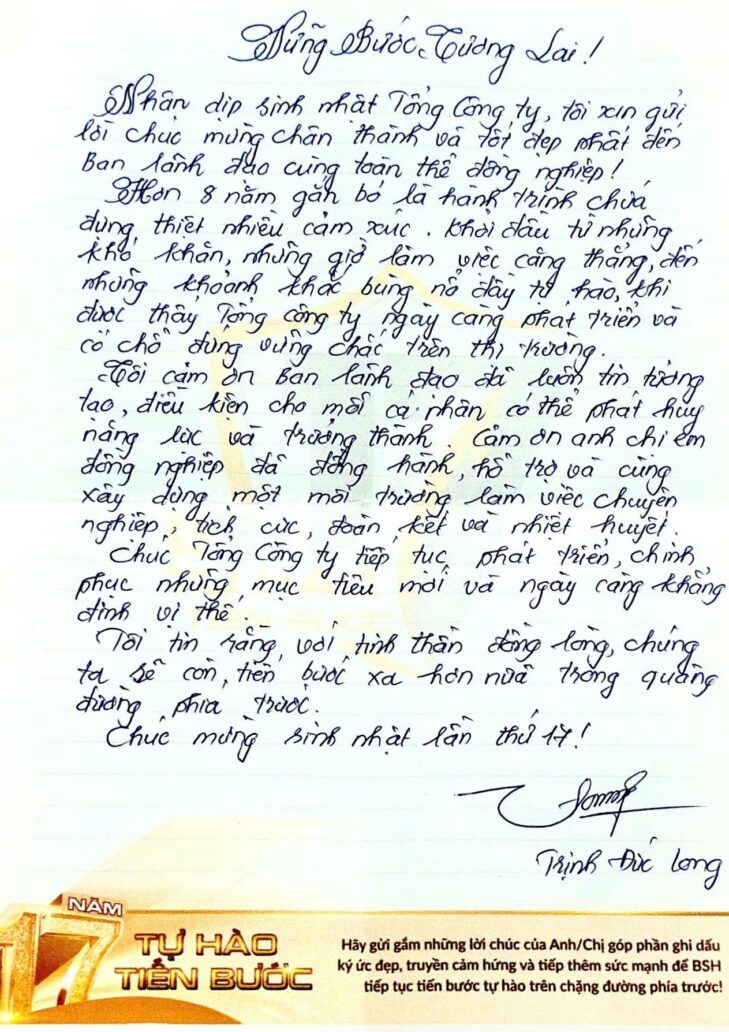 Vững Bước Tương Lai!
Nhân dịp sinh nhật Tổng Công ty, tôi xin gửi
lời chúc mừng chân thành và tốt đẹp nhất đến
Ban lãnh đạo cùng toàn thể đồng nghiệp!
Hơn 8 năm gắn bó là hành trình chứa
đựng thiệt nhiều cảm xúc. Khởi đầu từ những
khó khăn, những giờ làm việc căng thẳng, đến
những khoảnh khắc bùng nổ đầy tự hào, khi
được thấy Tổng công ty ngày càng phát triển và
có chỗ đứng vững chắc trên thị trường.
Tôi cảm ơn Ban lãnh đạo đã luôn tin tưởng
tạo, điều kiện cho mỗi cá nhân có thể phát huy
năng lực và trưởng thành. Cảm ơn anh chị em
đồng nghiệp đã đồng hành, hỗ trợ và cùng
xây dựng một môi trường làm việc chuyên
nghiệp, tích cực, đoàn kết và nhiệt huyết.
Chúc Tổng Công ty tiếp tục phát triển, chinh
phục những mục tiêu mới và ngày càng khẳng
định vị thế.
Tôi tin rằng, với tinh thần đồng lòng, chúng
ta sẽ còn, tiến bước xa hơn nữa trong quãng
đường phía trước.
Chúc mừng sinh nhật lần thứ 17!
Trịnh Đức Long
17 NĂM
TỰ HÀO
TIẾN BƯỚC
Hãy gửi gắm những lời chúc của Anh/Chị góp phần ghi dấu
ký ức đẹp, truyền cảm hứng và tiếp thêm sức mạnh để BSH
tiếp tục tiến bước tự hào trên chặng đường phía trước!